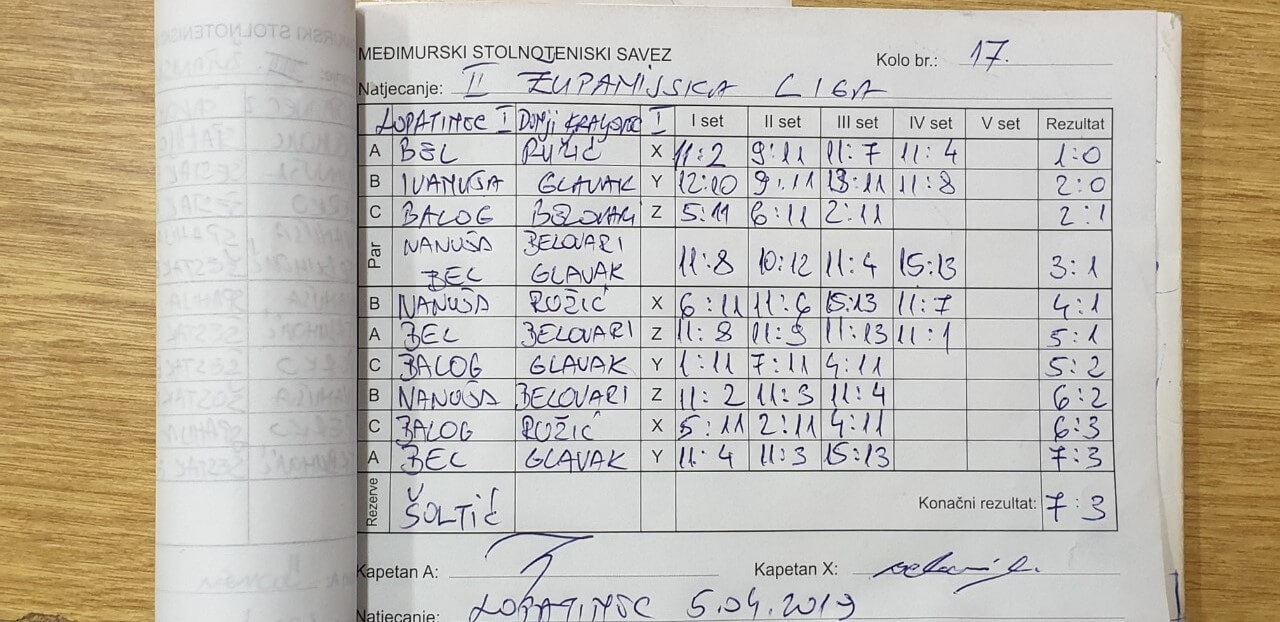 MEĐIMURSKI STOLNOTENISKI SAVEZ Kolo br.: 17.
Natjecanje: II ŽUPANIJSKA LIGA
LOPATINEC I DONJI KRALJEVEC I I set II set III set IV set V set Rezultat
A BEL RUŽIĆ X 11:2 9:11 11:7 11:4 1:0
B IVANUŠA GLAVAK Y 12:10 9:11 13:11 11:8 2:0
C BALOG BELOVARI Z 5:11 6:11 2:11 2:1
Par NANUŠA BELOVARI
BEL GLAVAK 11:8 10:12 11:4 15:13 3:1
B NANUŠA ROŽIĆ X 6:11 11:6 15:13 11:7 4:1
A BEL BELOVARI Z 11:8 11:9 11:13 11:1 5:1
C BALOG GLAVAK Y 1:11 7:11 4:11 5:2
B NANUŠA BELOVARI Z 11:2 11:3 11:4 6:2
C BALOG ROŽIĆ X 5:11 2:11 4:11 6:3
A BEL GLAVAK Y 11:4 11:3 15:13 7:3
Rezerve ŠOLTIĆ Konačni rezultat: 7:3
Kapetan A: Kapetan X:
Natjecanje: LOPATINEC 5.04.2019